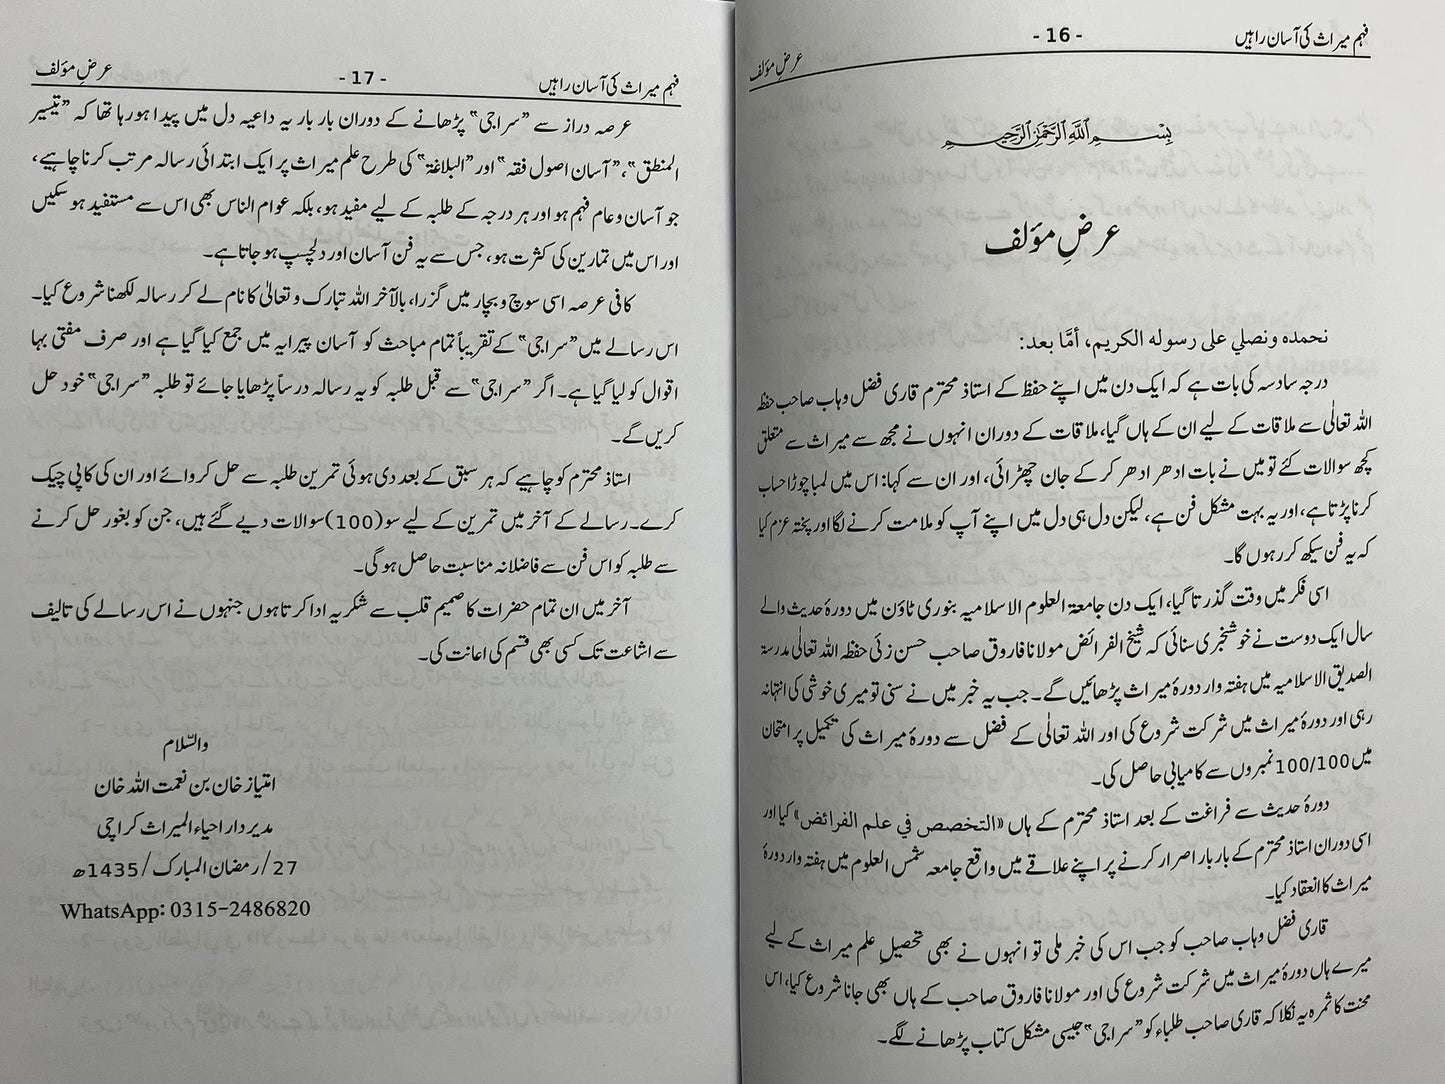 فہم میراث کی آسان راہیں
- 16 -
عرضِ مؤلف
بِسْمِ اللَّهِ الرَّحْمَٰنِ الرَّحِيمِ
عرضِ مؤلف
نحمده ونصلي على رسوله الكريم، أمَّا بعد:
درجہ سادسہ کی بات ہے کہ ایک دن میں اپنے حفظ کے استاذ محترم قاری فضل وہاب صاحب حفظہ
اللہ تعالٰی سے ملاقات کے لیے ان کے ہاں گیا، ملاقات کے دوران انہوں نے مجھ سے میراث سے متعلق
کچھ سوالات کئے تو میں نے بات ادھر ادھر کر کے جان چھڑائی، اور ان سے کہا: اس میں لمبا چوڑا حساب
کرنا پڑتا ہے، اور یہ بہت مشکل فن ہے، لیکن دل ہی دل میں اپنے آپ کو ملامت کرنے لگا اور پختہ عزم کیا
کہ یہ فن سیکھ کر رہوں گا۔
اسی فکر میں وقت گذرتا گیا، ایک دن جامعۃ العلوم الاسلامیہ بنوری ٹاؤن میں دورۂ حدیث والے
سال ایک دوست نے خوشخبری سنائی کہ شیخ الفرائض مولانا فاروق صاحب حسن زئی حفظہ اللہ تعالٰی مدرسۃ
الصدیق الاسلامیہ میں ہفتہ وار دورۂ میراث پڑھائیں گے۔ جب یہ خبر میں نے سنی تو میری خوشی کی انتہا نہ
رہی اور دورۂ میراث میں شرکت شروع کی اور اللہ تعالٰی کے فضل سے دورۂ میراث کی تکمیل پر امتحان
میں 100/100 نمبروں سے کامیابی حاصل کی۔
دورۂ حدیث سے فراغت کے بعد استاذ محترم کے ہاں «التخصص في علم الفرائض» کیا اور
اسی دوران استاذ محترم کے بار بار اصرار کرنے پر اپنے علاقے میں واقع جامعہ شمس العلوم میں ہفتہ وار دورۂ
میراث کا انعقاد کیا۔
قاری فضل وہاب صاحب کو جب اس کی خبر ملی تو انہوں نے بھی تحصیلِ علم میراث کے لیے
میرے ہاں دورۂ میراث میں شرکت شروع کی اور مولانا فاروق صاحب کے ہاں بھی جانا شروع کیا، اس
محنت کا ثمرہ یہ نکلا کہ قاری صاحب طلباء کو "سراجی" جیسی مشکل کتاب پڑھانے لگے۔
فہم میراث کی آسان راہیں
- 17 -
عرضِ مؤلف
عرصہ دراز سے "سراجی" پڑھانے کے دوران بار بار یہ داعیہ دل میں پیدا ہو رہا تھا کہ "تیسیر
المنطق"، "آسان اصول فقہ" اور "البلاغۃ" کی طرح علم میراث پر ایک ابتدائی رسالہ مرتب کرنا چاہیے،
جو آسان و عام فہم ہو اور ہر درجہ کے طلبہ کے لیے مفید ہو، بلکہ عوام الناس بھی اس سے مستفید ہو سکیں
اور اس میں تمارین کی کثرت ہو، جس سے یہ فن آسان اور دلچسپ ہو جاتا ہے۔
کافی عرصہ اسی سوچ و بچار میں گزرا، بالآخر اللہ تبارک و تعالیٰ کا نام لے کر رسالہ لکھنا شروع کیا۔
اس رسالے میں "سراجی" کے تقریباً تمام مباحث کو آسان پیرایہ میں جمع کیا گیا ہے اور صرف مفتی بہا
اقوال کو لیا گیا ہے۔ اگر "سراجی" سے قبل طلبہ کو یہ رسالہ درساً پڑھایا جائے تو طلبہ "سراجی" خود حل
کریں گے۔
استاذ محترم کو چاہیے کہ ہر سبق کے بعد دی ہوئی تمرین طلبہ سے حل کروائے اور ان کی کاپی چیک
کرے۔ رسالے کے آخر میں تمرین کے لیے سو (100) سوالات دیے گئے ہیں، جن کو بغور حل کرنے
سے طلبہ کو اس فن سے فاضلانہ مناسبت حاصل ہو گی۔
آخر میں ان تمام حضرات کا صمیم قلب سے شکریہ ادا کرتا ہوں جنہوں نے اس رسالے کی تالیف
سے اشاعت تک کسی بھی قسم کی اعانت کی۔
والسّلام
امتیاز خان بن نعمت اللہ خان
مدیر دار احیاء المیراث کراچی
27/رمضان المبارک/1435ھ
WhatsApp: 0315-2486820